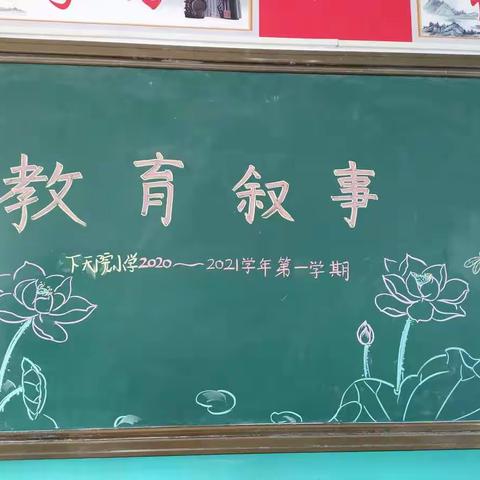 教育叙事
下天院小学2020——2021学年第一学期